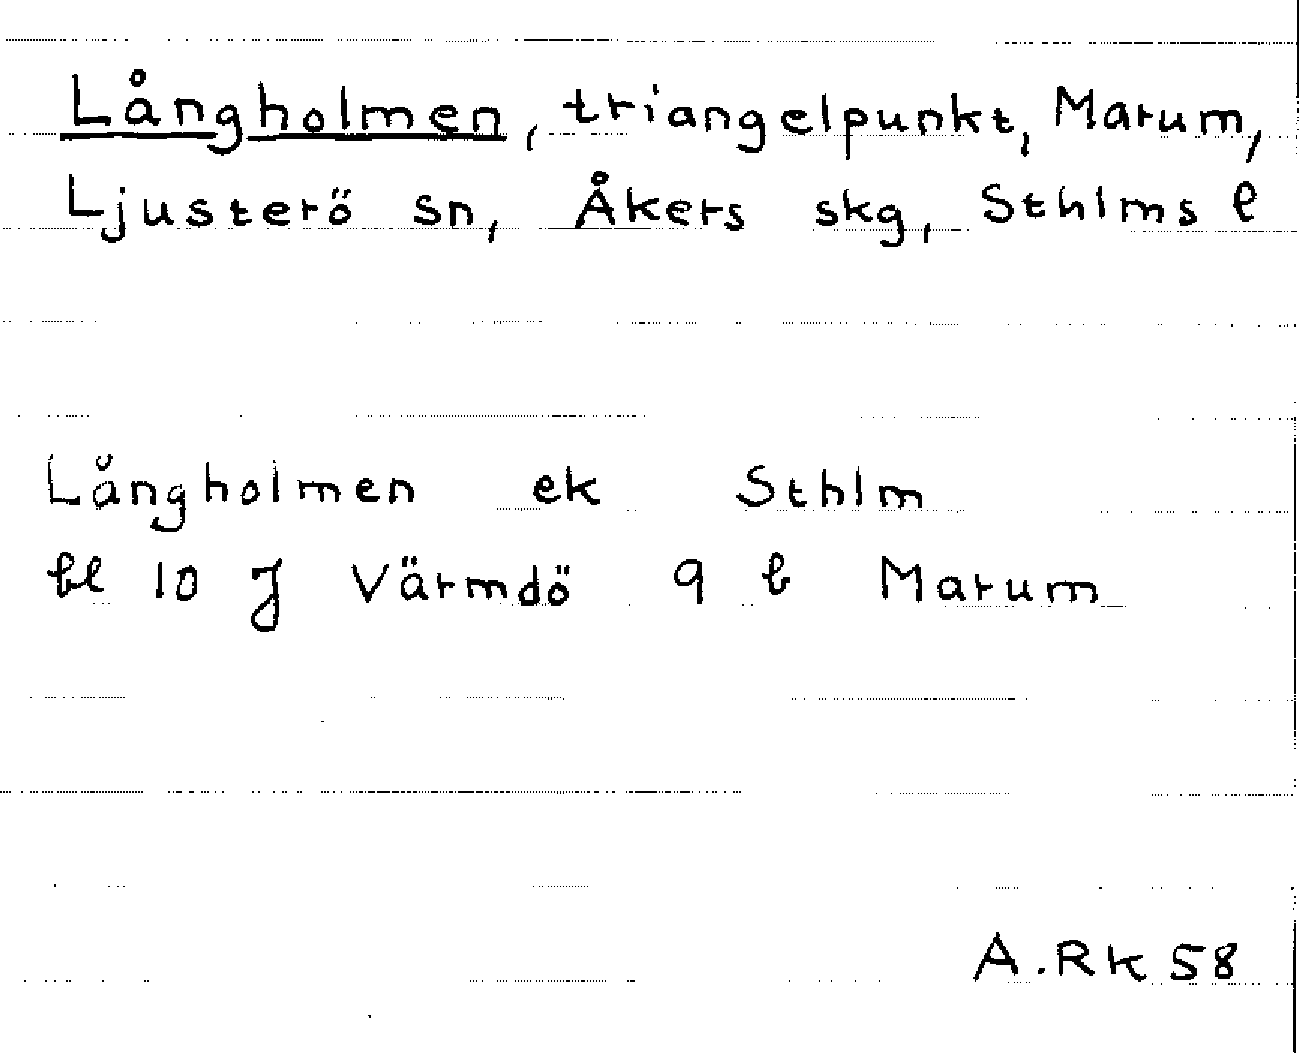 Långholmen, triangelpunkt, Marum,
Ljusterö sn, Åkers skg, Sthlms l
Långholmen ek Sthlm
bl 10 J Värmdö 9 b Marum
A.Rk 58